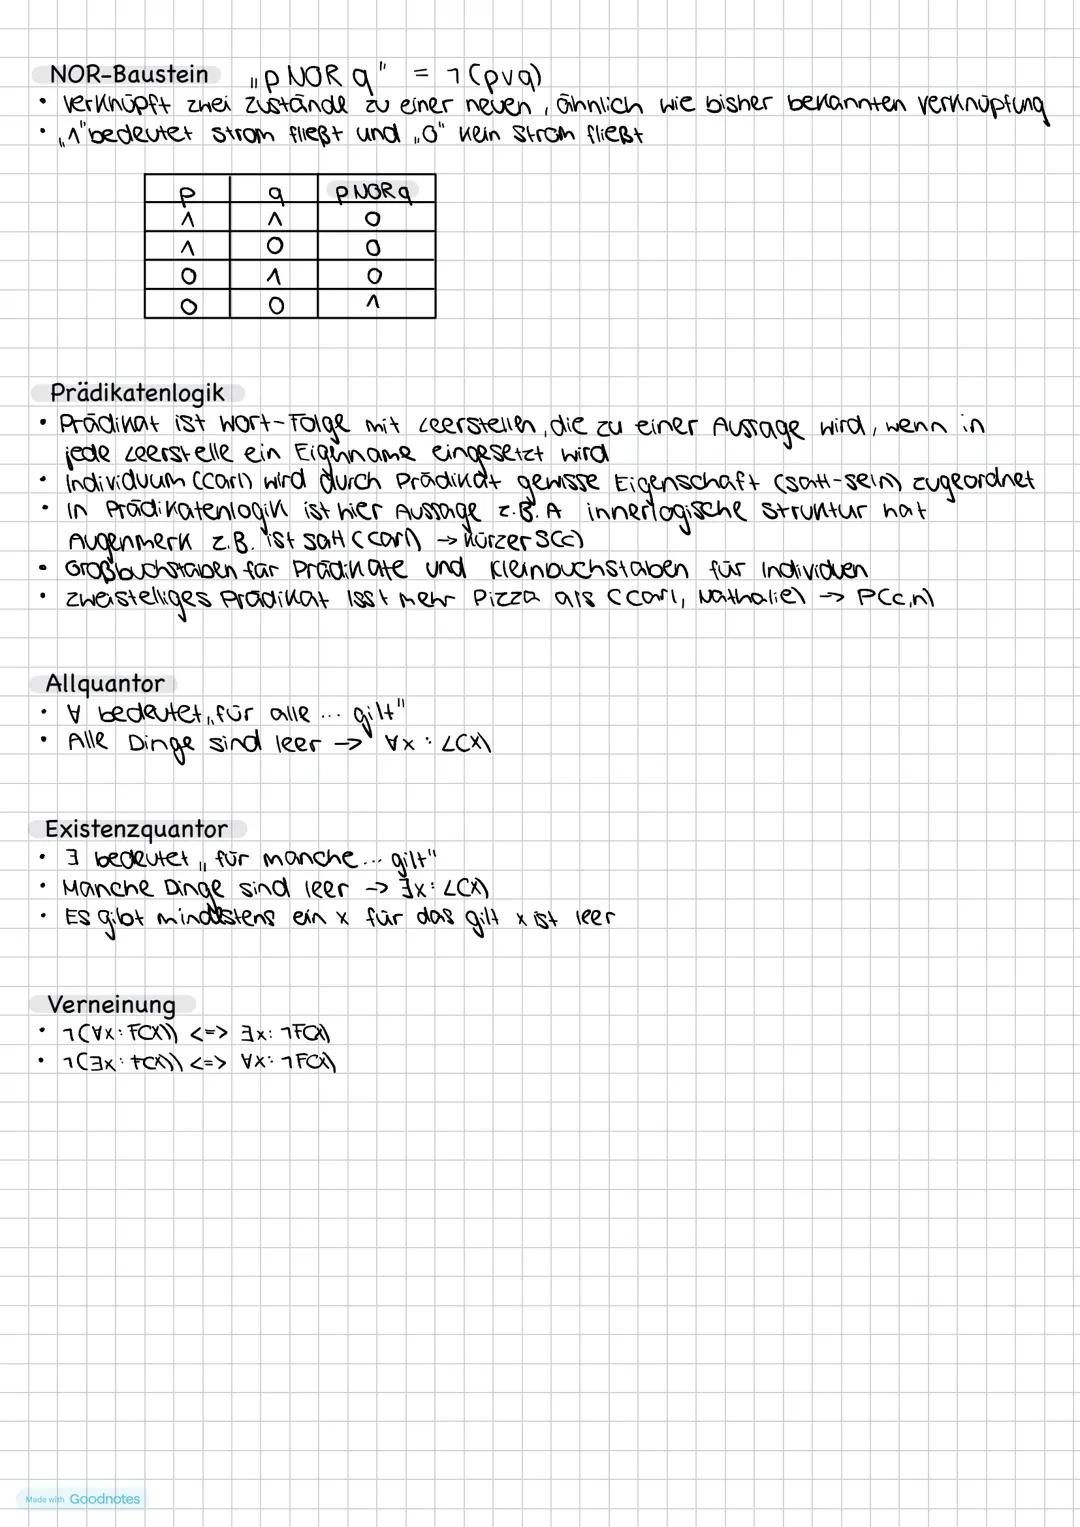 NOR-Baustein „p NOR q" = ¬(p∨q)
• verknüpft zwei Zustände zu einer neuen, ähnlich wie bisher bekannten verknüpfung
• „1" bedeutet strom fließt und „0" kein Strom fließt
p q p NOR q
1 1 0
1 0 0
0 1 0
0 0 1
Prädikatenlogik
• Prädikat ist Wort-Folge mit Leerstellen, die zu einer Aussage wird, wenn in
jede Leerstelle ein Eigenname eingesetzt wird
• Individuum (Carl) wird durch Prädikat gewisse Eigenschaft (satt-sein) zugeordnet
• In Prädikatenlogik ist hier Aussage z.B. A innerlogische Struktur hat
Augenmerk z.B. ist satt (Carl) → kürzer S(c)
• Großbuchstaben für Prädikate und Kleinbuchstaben für Individuen
• zweistelliges Prädikat isst mehr Pizza als (Carl, Nathalie) → P(c,n)
Allquantor
• ∀ bedeutet „für alle ... gilt"
• Alle Dinge sind leer → ∀x : L(x)
Existenzquantor
• ∃ bedeutet „für manche ... gilt"
• Manche Dinge sind leer → ∃x : L(x)
• Es gibt mindestens ein x für das gilt x ist leer
Verneinung
• ¬(∀x : F(x)) <=> ∃x : ¬F(x)
• ¬(∃x : F(x)) <=> ∀x : ¬F(x)
Made with Goodnotes